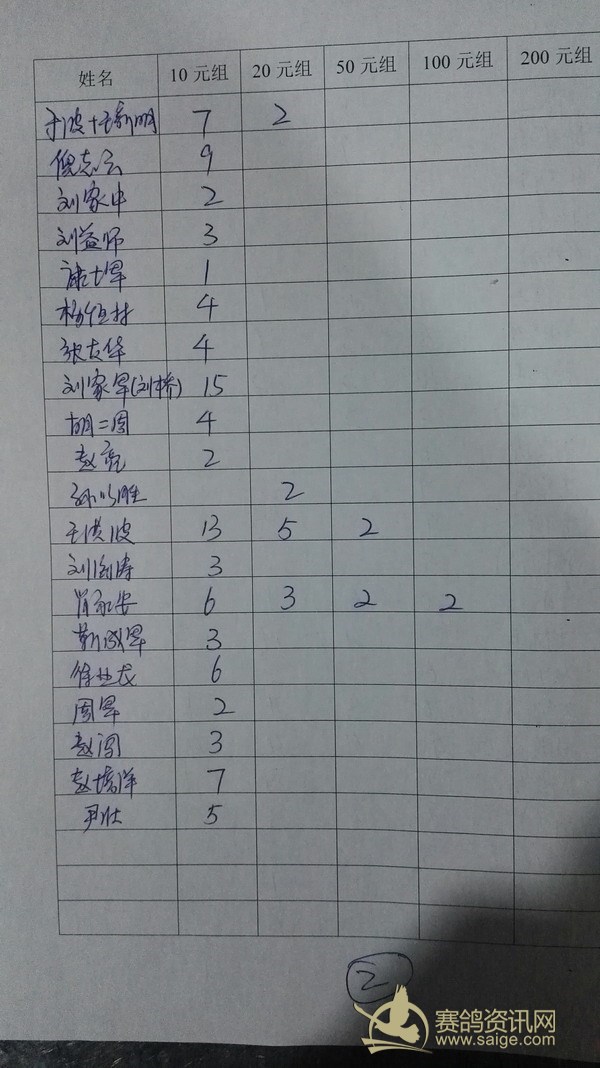 姓名 10元组 20元组 50元组 100元组 200元组
于波+王新明 7 2
倪志云 9
刘家中 2
刘益师 3
1
杨恒村 4
张友华 4
刘家军(刘桥) 15
胡二周 4
赵亮 2
孙以胜 2
王洪波 13 5 2
刘海涛 3
肖永安 6 3 2 2
靳成军 3
徐 龙 6
周军 2
赵闯 3
赵培洋 7
尹壮 5
2
赛鸽资讯网
www.saige.com